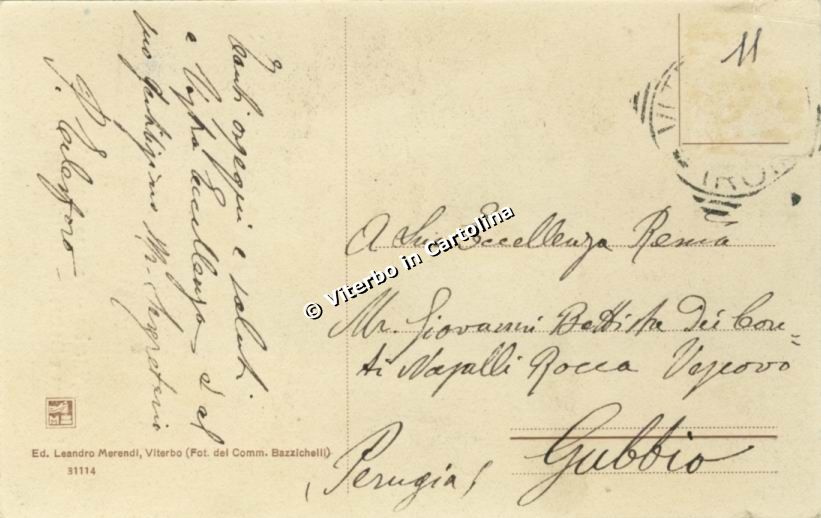 Tanti ossequi e saluti
a Vostra Eccellenza e al
suo Segretario
11
VITERBO
A Sua Eccellenza Rema
Mr. Giovanni Battista Dei Con=
ti Nasalli Rocca Vescovo
Gubbio
(Perugia)
© Viterbo in Cartolina
Ed. Leandro Merendi, Viterbo (Fot. del Comm. Bazzichelli)
31114